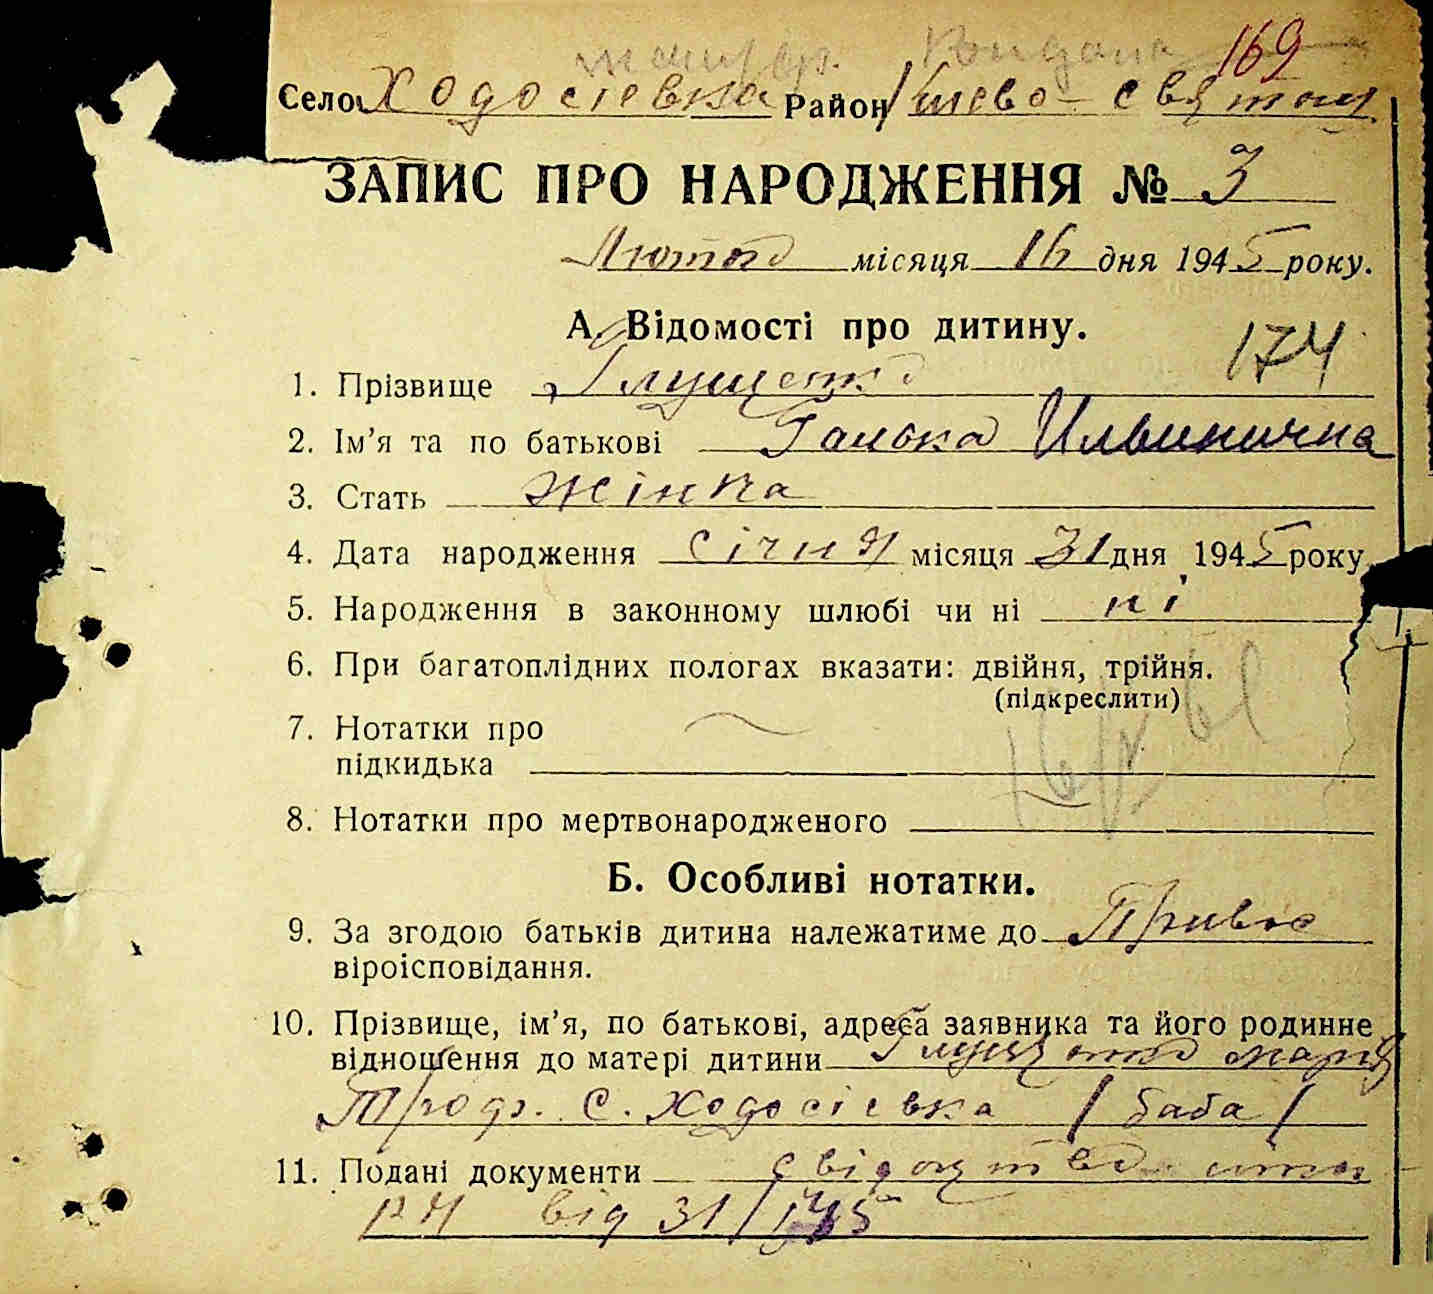 169
Село Ходосіевка Район Києво-Святош
ЗАПИС ПРО НАРОДЖЕННЯ № 3
Лютого місяця 16 дня 1945 року.
А. Відомості про дитину.
174
1. Прізвище Глущенко
2. Ім’я та по батькові Галька Ильинична
3. Стать жінка
4. Дата народження січня місяця 31 дня 1945 року
5. Народження в законному шлюбі чи ні ні
6. При багатоплідних пологах вказати: двійня, трійня.
(підкреслити)
7. Нотатки про
підкидька
8. Нотатки про мертвонародженого
Б. Особливі нотатки.
9. За згодою батьків дитина належатиме до
віроісповідання.
10. Прізвище, ім’я, по батькові, адреса заявника та його родинне
відношення до матері дитини Глущенко Марія
Трод. с. Ходосіевка /баба/
11. Подані документи
від 31/I 45